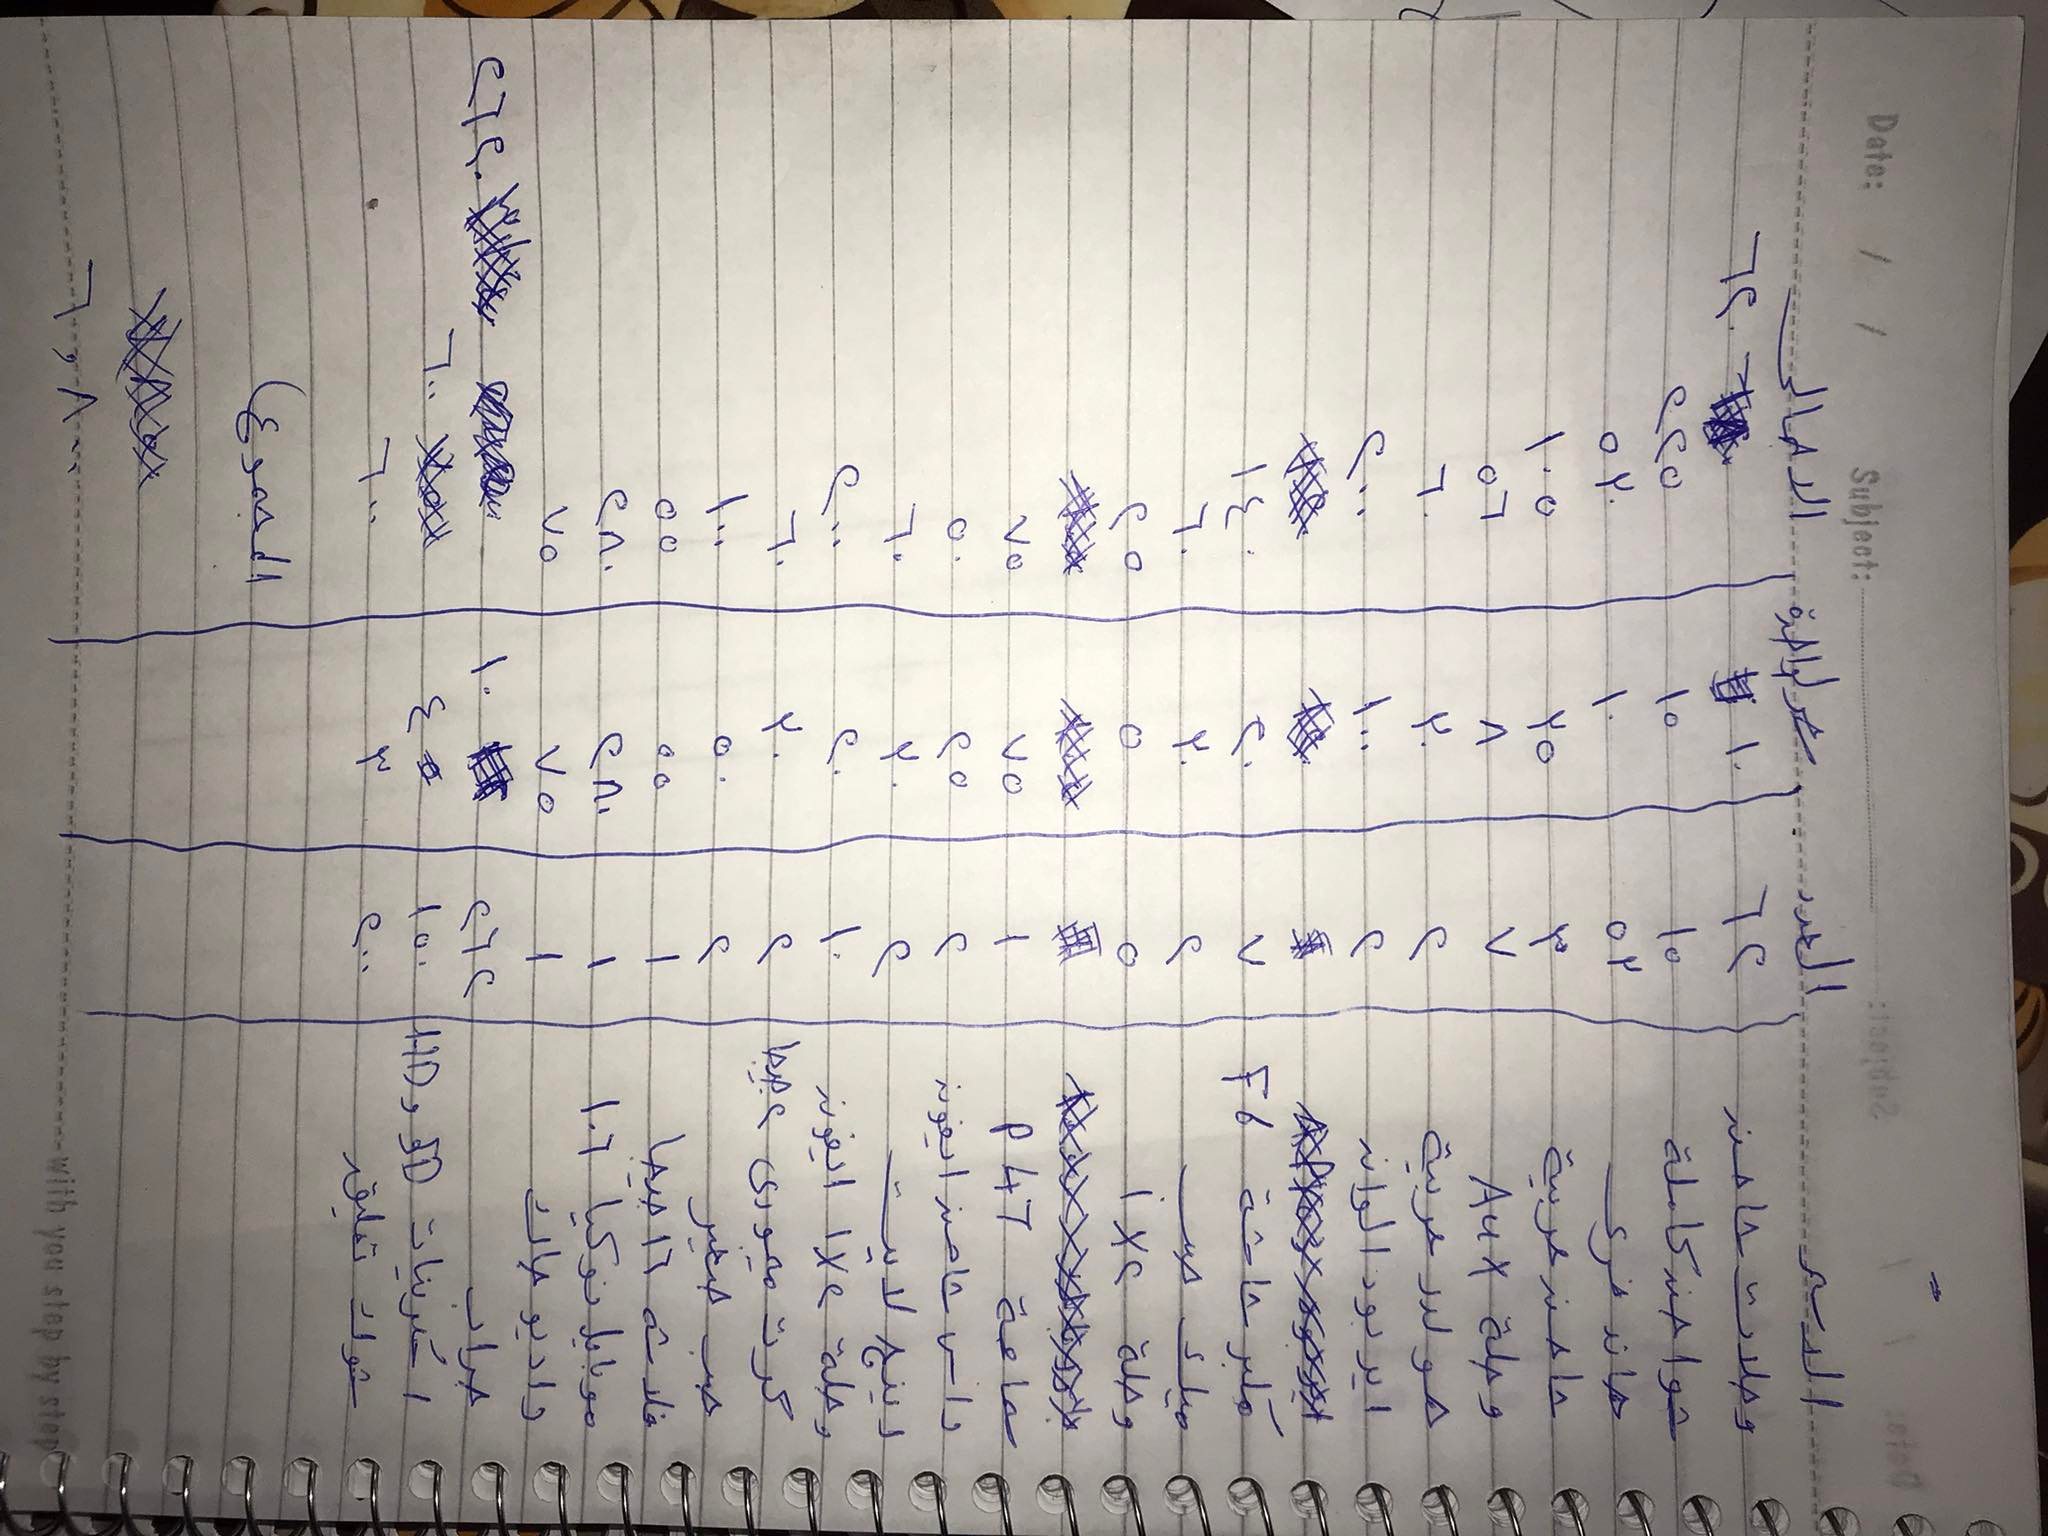 Date: / / Subject:
الاسم العدد سعر الواحدة الاجمالى
وصلات شاحن ٦٢ ١٠ ٦٢٠
شواحن كاملة ١٥ ١٥ ٢٢٥
هاند فرى ٥٢ ١٠ ٥٢٠
شاحن عربية ٣ ٣٥ ١٠٥
وصلة Aux ٧ ٨ ٥٦
هولدر عربية ٢ ٣٠ ٦٠
ايربود الوان ٢ ١٠٠ ٢٠٠
مكبر شاشة F6 ٧ ٢٠ ١٤٠
ميك صب ٢ ٣٠ ٦٠
وصلة ١X٢ ٥ ٥ ٢٥
سماعة P47 ١ ٧٥ ٧٥
راس شاحن ايفون ٢ ٢٥ ٥٠
رينج لايت ٢ ٣٠ ٦٠
وصلة ١X٢ ايفون ١٠ ٢٠ ٢٠٠
كرت ميمورى ٢ جيجا ٢ ٣٠ ٦٠
صب صغير ٢ ٥٠ ١٠٠
فلاشه ١٦ جيجا ١ ٥٥ ٥٥
موبايل نوكيا ١٠٦ ١ ٢٨٠ ٢٨٠
راديو جاك ١ ٧٥ ٧٥
جراب ٢٦٢ ١٠ ٢٦٢٠
اسكرينات 5D و HD ١٥٠ ٤ ٦٠٠
شوك تعليق ٢٠٠ ٣ ٦٠٠
المجموع
٦,٨٠٠
with you step by step